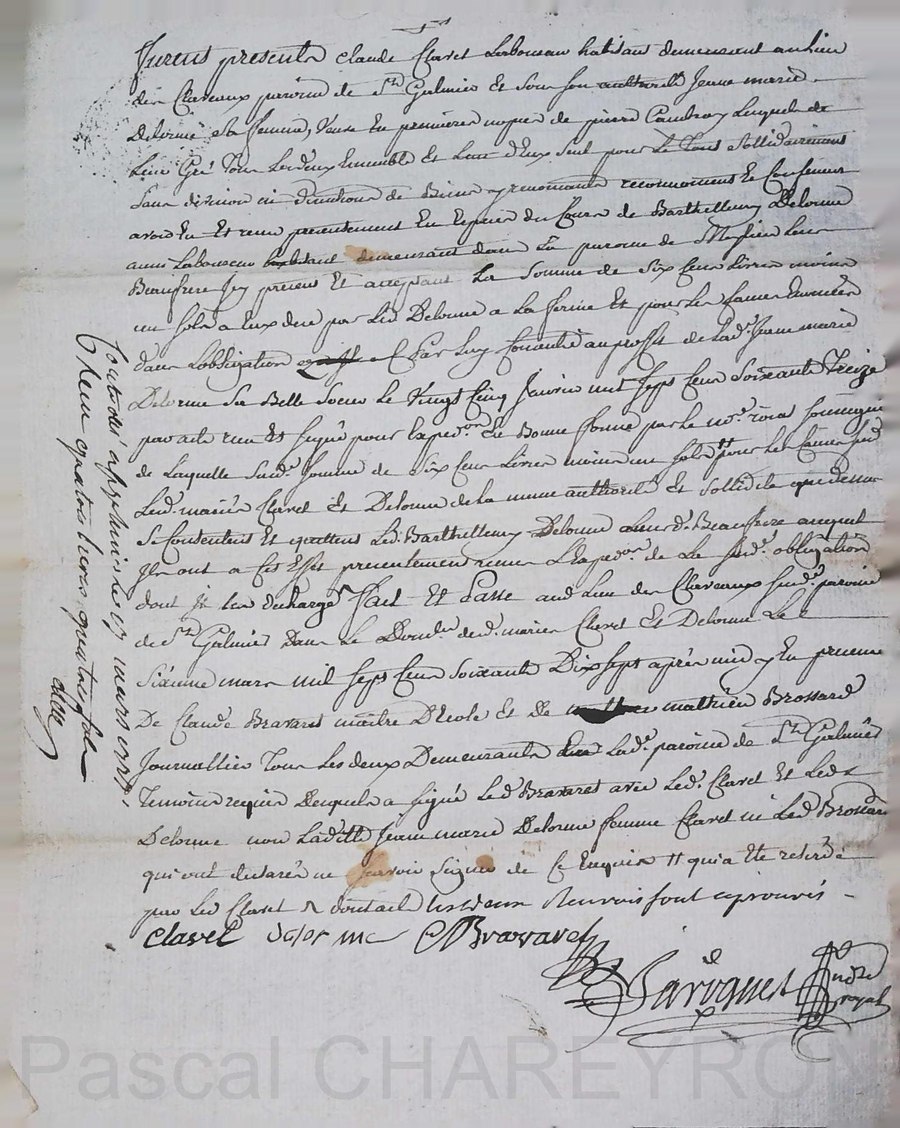 furent presents claude Clavel Laboureau habitant demeurant au lieu
des Claveaux paroisse de St Galmier Et sous son authorité Jeanne marie
Delorme sa femme, veuve En premieres nopces de pierre Lesquels de
Leur Gré Tous Lesdeux Ensemble Et Lun d'Eux seul pour Le Tout Sollidairement
sans division ni discution de Biens y renonceants reconnoissent Et Confessent
avoir Eu Et receu presentement En Espece du Cours de Barthellemy Delorme
aussi Laboureau demeurant dans La paroisse de Leur
Beaufrere Icy present Et acceptant La Somme de Six Cent Livres moins
un sols a Eux deue par Led Delorme a La forme Et pour Les Causes Enoncées
dans Lobbligation Et Par Luy Consentie au proffit de Lad. Jeanne marie
Delorme Sa Belle Soeur Le Vingt Cinq Janvier mil Sept Cent Soixante Treize
par acte receu Et signé pour Expedon En Bonne forme par Le nore roial soussigné
de Laquelle Susd. Somme de Six Cent Livres moins un Sols pour Les Causes susd.
Lesd. mariés Clavel Et Delorme de la meme authorité Et Sollidité que dessus
Se Contentent Et quittent Led. Barthellemy Delorme Leurd. Beaufrere auquel
Ils ont a Cet Effet presentement remis L'Expedon de La susd. obbligation
dont Il Les decharge Fait Et Passé aud. Lieu des Claveaux susd. paroisse
de St Galmier Dans Le Domcle desd. mariés Clavel Et Delorme Le
Sixieme mars mil Sept Cent Soixante Dix Sept après midy En presence
De Claude Bravaret maitre D'Ecole Et De mathieu Brossard
Journallier Tous Les deux Demeurants Lad. paroisse de St Galmier
Temoins requis Desquels a signé Led Bravaret avec Led. Clavel Et Led.
Delorme non Laditte Jeanne marie Delorme femme Clavel ni Led Brossard
qui ont declarés ne Scavoir Signer de Ce Enquis qui a Eté reiteré
par Led Clavel Les deux Renvois sont approuvés
Clavel delorme CBravaret
Andre
royal
mars 1777
Receu quatre livres quatre sols
Pascal CHAREYRON